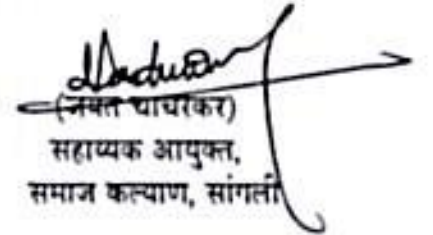 (जयंत चाचरकर)
सहाय्यक आयुक्त,
समाज कल्याण, सांगली